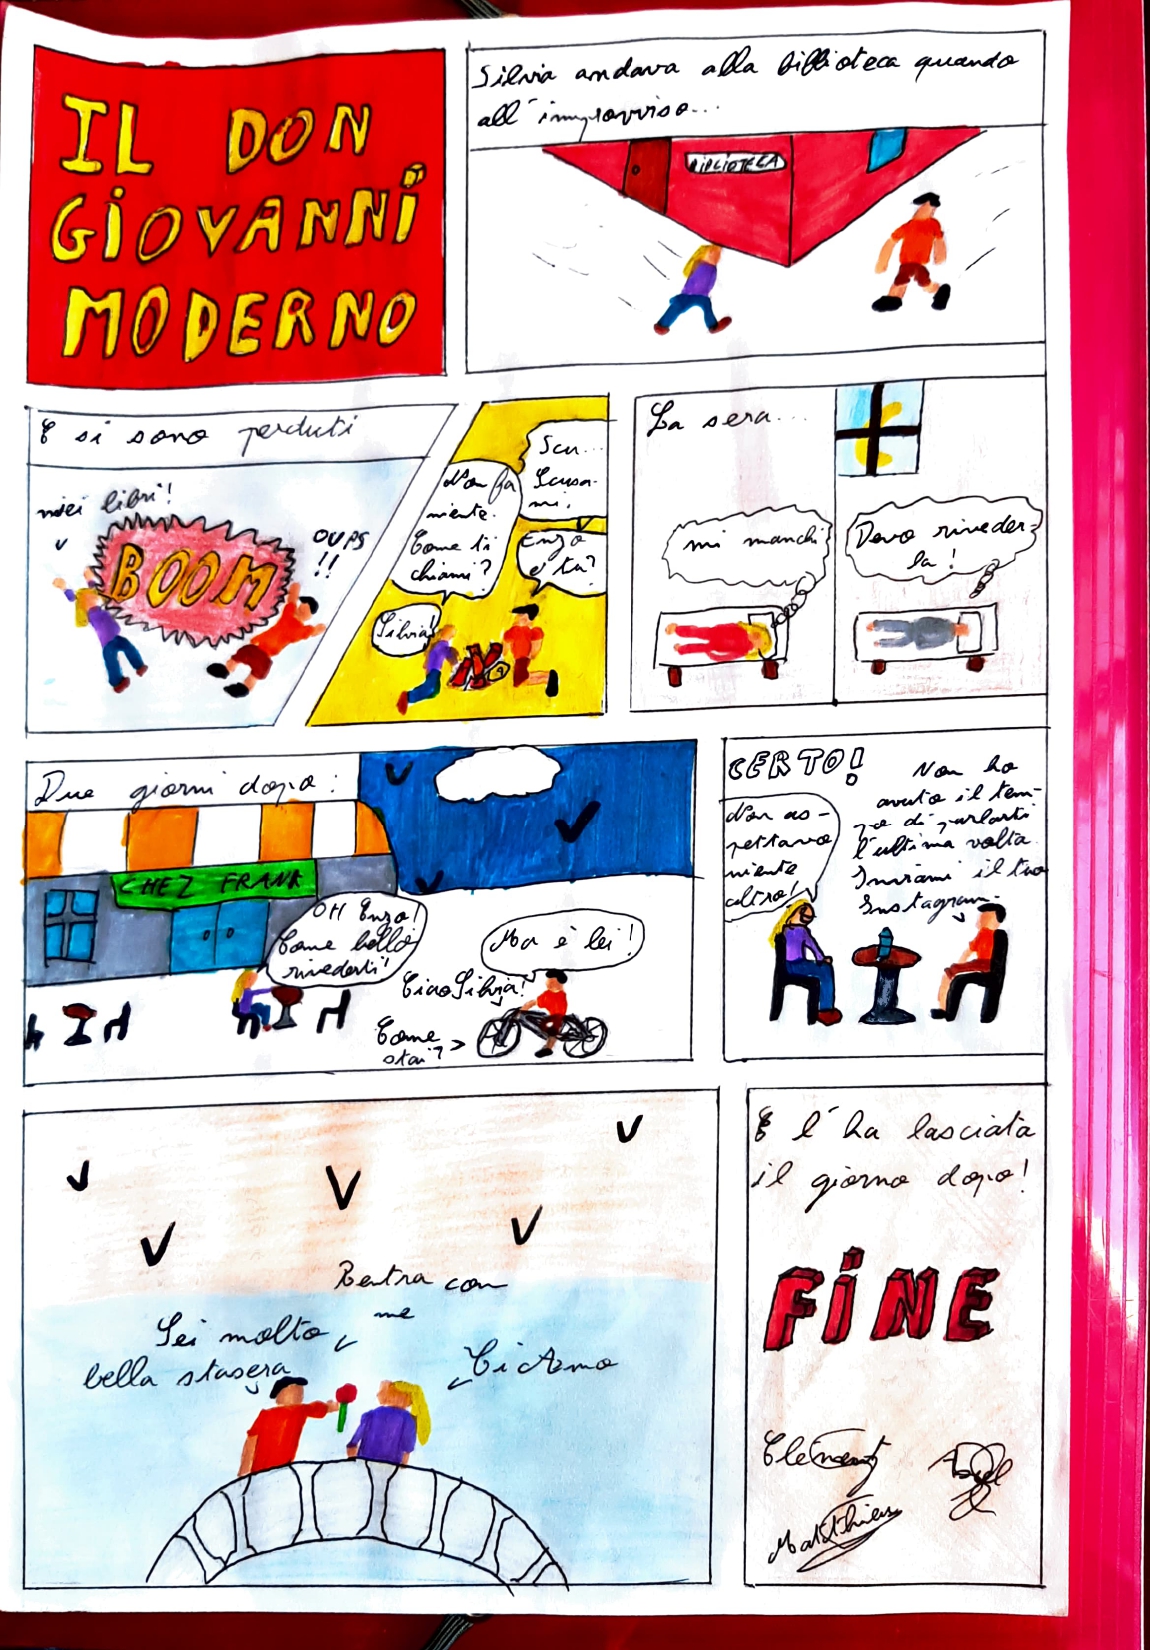 IL DON
GIOVANNI
MODERNO
Silvia andava alla biblioteca quando
all'improvviso...
BIBLIOTECA
E si sono perduti
miei libri!
BOOM
OUPS
!!
Scu...
Scusa-
mi.
Non fa
niente.
Come ti
chiami?
Enzo
e tu?
Silvia!
La sera...
mi manchi
Devo riveder-
la!
Due giorni dopo:
CHEZ FRANK
OH Enzo!
Come bello
rivederti!
Ma è lei!
Ciao Silvia!
Come
stai?
CERTO!
Non as-
pettavo
niente
altro!
Non ho
avuto il tem-
po di parlarti
l'ultima volta.
Inviami il tuo
Instagram.
Rentra con
me
Sei molto
bella stasera
Ti Amo
E l'ha lasciata
il giorno dopo!
FiNE
Clément
Matthieu